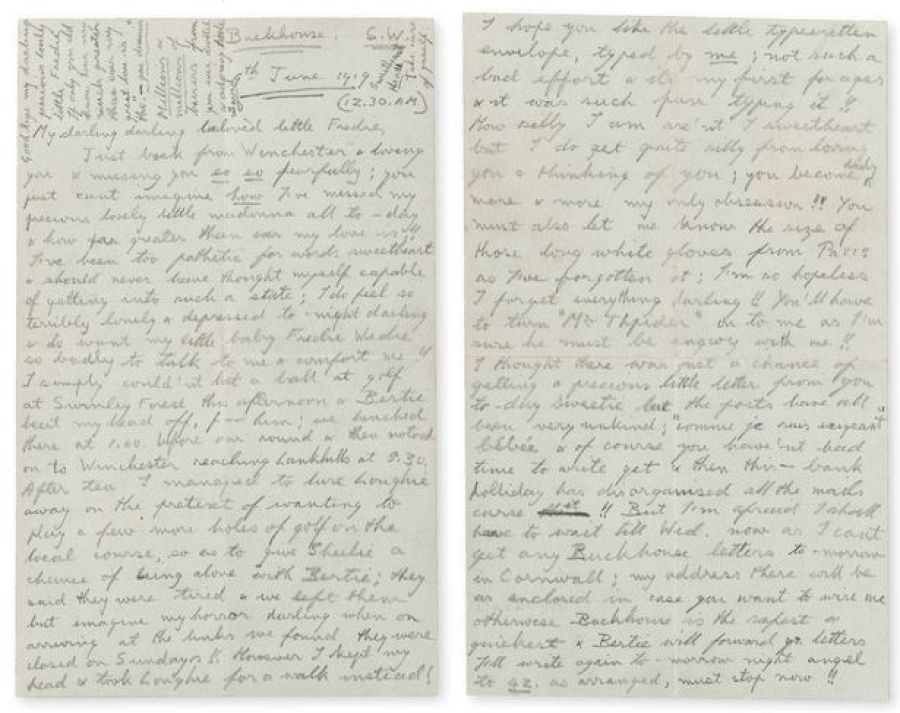 Buckhouse. S.W.
th June 1919.
(12.30.A.M.)
Goodbye my darling
precious lovely
little Fredie
if only you
great love is!
Millions &
millions of
baisers from
My darling darling beloved little Fredie,
Just back from Winchester & loving
you & missing you so so fearfully; you
just cant imagine how I've missed my
precious lovely little madonna all to-day
& how far greater than ever my love is!!
I've been too pathetic for words sweetheart
& should never have thought myself capable
of getting into such a state; I do feel so
terribly lonely & depressed to-night darling
& do want my little baby Fredie Wedie
so badly to talk to me & comfort me!!
I simply could'nt hit a ball at golf
at Swinley Forest this afternoon & Bertie
beat my head off, f— him; we lunched
there at 1.00. before our round & then motored
on to Winchester reaching Lankhills at 5.30.
After tea I managed to lure Loughie
away on the pretext of wanting to
play a few more holes of golf on the
local course, so as to give Sheilie a
chance of being alone with Bertie; they
said they were tired & we left them
but imagine my horror darling when on
arriving at the links we found they were
closed on Sundays!! However I kept my
head & took Loughie for a walk instead!
I hope you like the little typewritten
envelope, typed by me; not such a
bad effort & it's my first for ages
& it was such fun typing it!!
How silly I am are'nt I sweetheart
but I do get quite silly from loving
you & thinking of you; you become daily
more & more my only obsession!! You
must also let me know the size of
those long white gloves from Paris
as I've forgotten it; I'm so hopeless
I forget everything darling!! You'll have
to turn "Mr Thpider" on to me as I'm
sure he must be angwy with me!!
I thought there was just a chance of
getting a precious little letter from you
to-day sweetie but the posts have all
been very unkind; "comme je suis exigeant"
bébée & of course you have'nt had
time to write yet & then this — bank
holliday has disorganised all the mails
curse !! But I'm afwaid I shall
have to wait till Wed. now as I cant
get any Buckhouse letters to-morrow
in Cornwall; my address there will be
as enclosed in case you want to wire me
otherwise Buckhouse is the safest &
quickest & Bertie will forward yr. letters
I'll write again to-morrow night angel
to as arranged, must stop now!!